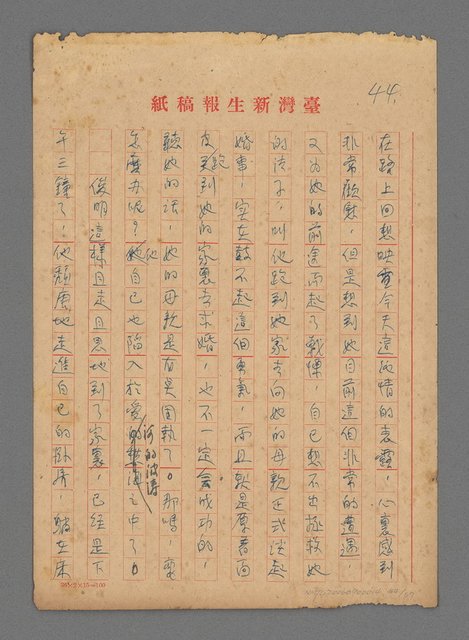 44.
紙稿報生新灣臺
在路上回想映雪今天這純情的表露，心裏感到
非常歡慰，但是想到她目前這個非常的遭遇，
又為她的前途而起了戰慄，自己想不出拯救她
的法子，叫他跑到她家去向她的母親正式談起
婚事，實在鼓不起這個勇氣，而且就是厚着面
皮跑到她的家裏去求婚，也不一定會成功的，
聽她的話，她的母親是頑固執了。那嗎，要
怎麼办呢？他自己也陷入於愛河的波濤之中了。
俊明這樣且走且思地到了家裏，已經是下
午三鐘了，他頹唐地走進自己的卧房，躺在床